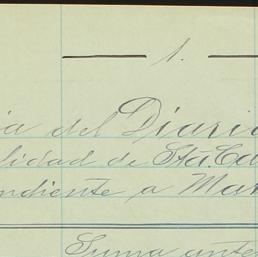 1.
ia del Diario
lidad de Sta. Ca
ndiente a Mar
Suma ante